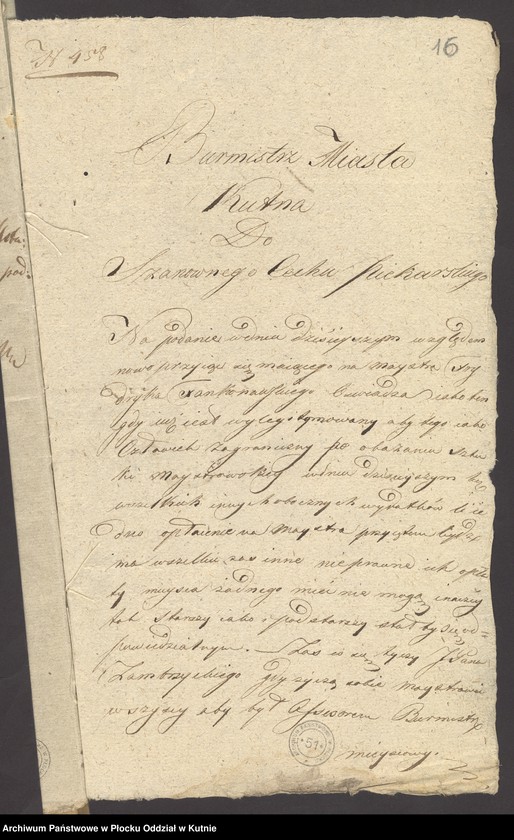 N 458
16
Burmistrz Miasta
Kutna
Do
Szanownego Cechu Piekarskiego
Na podanie w dniu dzisieyszym względem
nowo przyiąć się maiącego na maystra Fry
dryka
gdy iuż iest wylegitymowany aby tego iako
Człowiek zagraniczny po okazaniu sztu
ki maystrowskiey w dniu dzisieyszym bez
wszelkich innych obocznych wydatków ie
dno opłacenie na maystra przyięty był
ma wszelkie zaś inne nieprawne ich opła
ty mieysca żadnego mieć nie mogą inaczey
tak Starszy iako i podstarszy stałby się od=
powiedzialnym. Zaś co się tyczy JPana
Zambrzyckiego gdy życzą sobie maystrowie
wszyscy aby był Assessorem Burmistrz
mieyscowy.
51
Archiwum Państwowe w Płocku Oddział w Kutnie